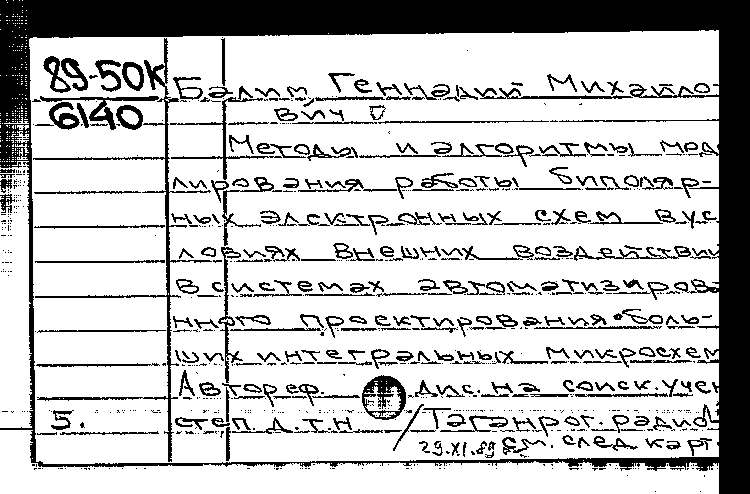 89-50К
6140
Балим, Геннадий Михайло-
вич
Методы и алгоритмы мод
лирования работы биполяр-
ных электронных схем в ус
ловиях внешних воздействий
в системах автоматизирова
нного проектирования боль-
ших интегральных микросхем
Автореф. дис. на соиск. учен
5. степ д.т.н / Таганрог. радио
29.XI.89 См. след карт